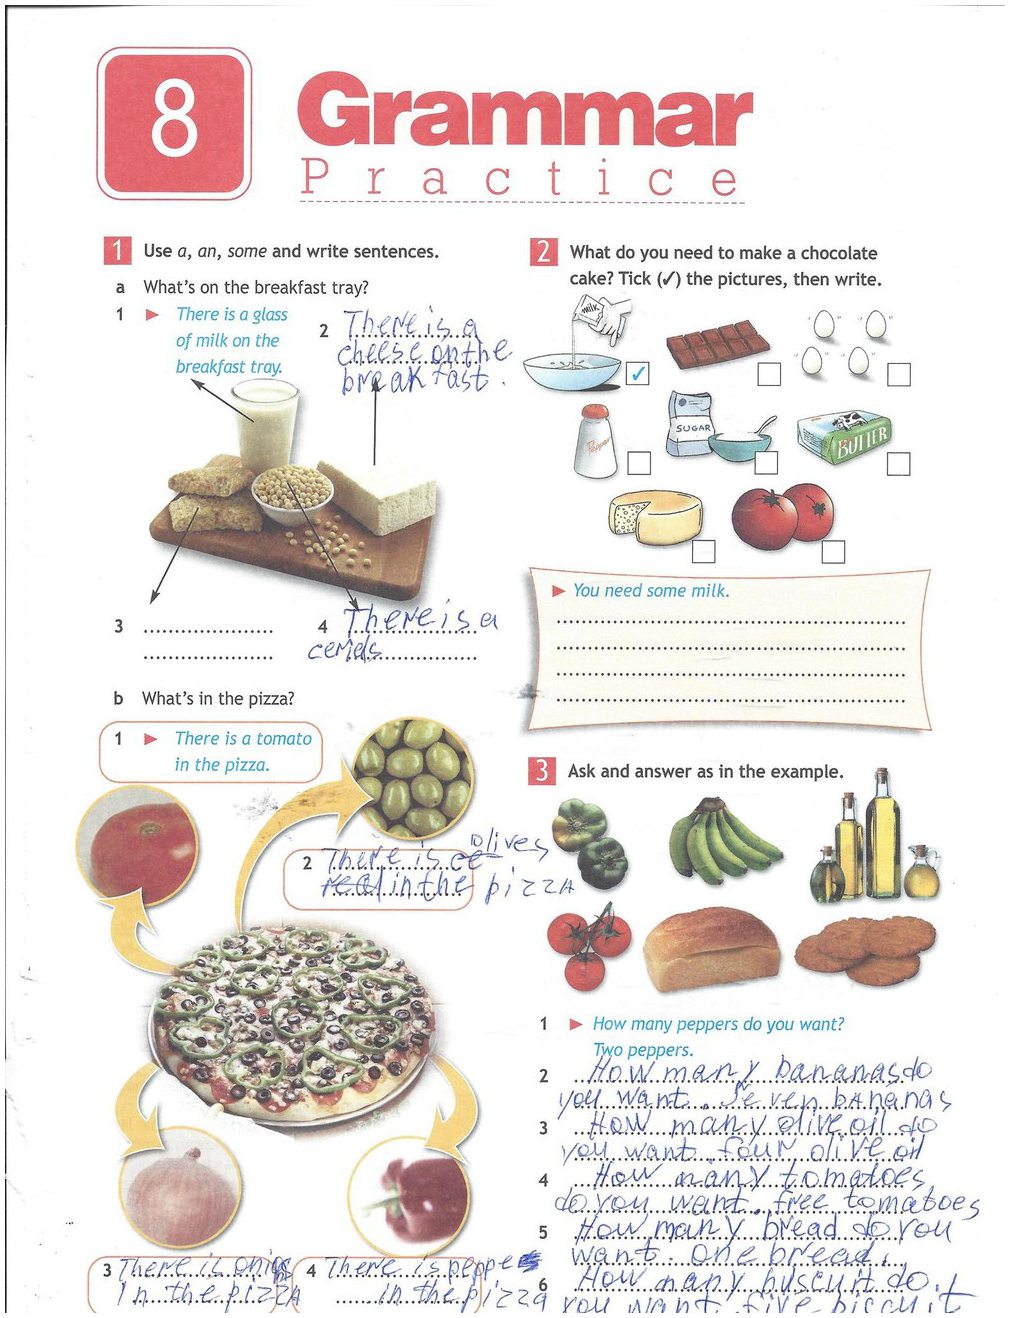 8
Grammar
Practice
1 Use a, an, some and write sentences.
a What's on the breakfast tray?
1 ► There is a glass
of milk on the
breakfast tray.
2 There is a
cheese on the
break fast.
3
4 There is a
b What's in the pizza?
1 ► There is a tomato
in the pizza.
2 There is
olives
in the pizza
3 There is
in the pizza
4 There is peppe
in the pizza
2 What do you need to make a chocolate
cake? Tick (✓) the pictures, then write.
milk
✓
Pepper
SUGAR
BUTTER
► You need some milk.
3 Ask and answer as in the example.
1 ► How many peppers do you want?
Two peppers.
2 How many bananas do
you want. Seven bananas
3 How many olive oil do
you want four olive oil
4 How many tomatoes
do you want. free tomatoes
5 How many bread do you
want. one bread.
6 How many buscuit do
you want five biscuit